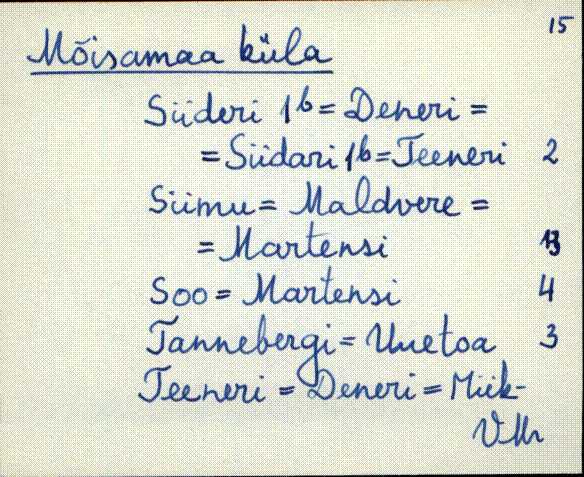 15
Mõisamaa küla
Siideri 1b = Deneri =
= Siidari 1b = Teeneri 2
Siimu = Maldvere =
= Martensi 13
Soo = Martensi 4
Tannebergi = Uuetoa 3
Teeneri = Deneri = Miik-